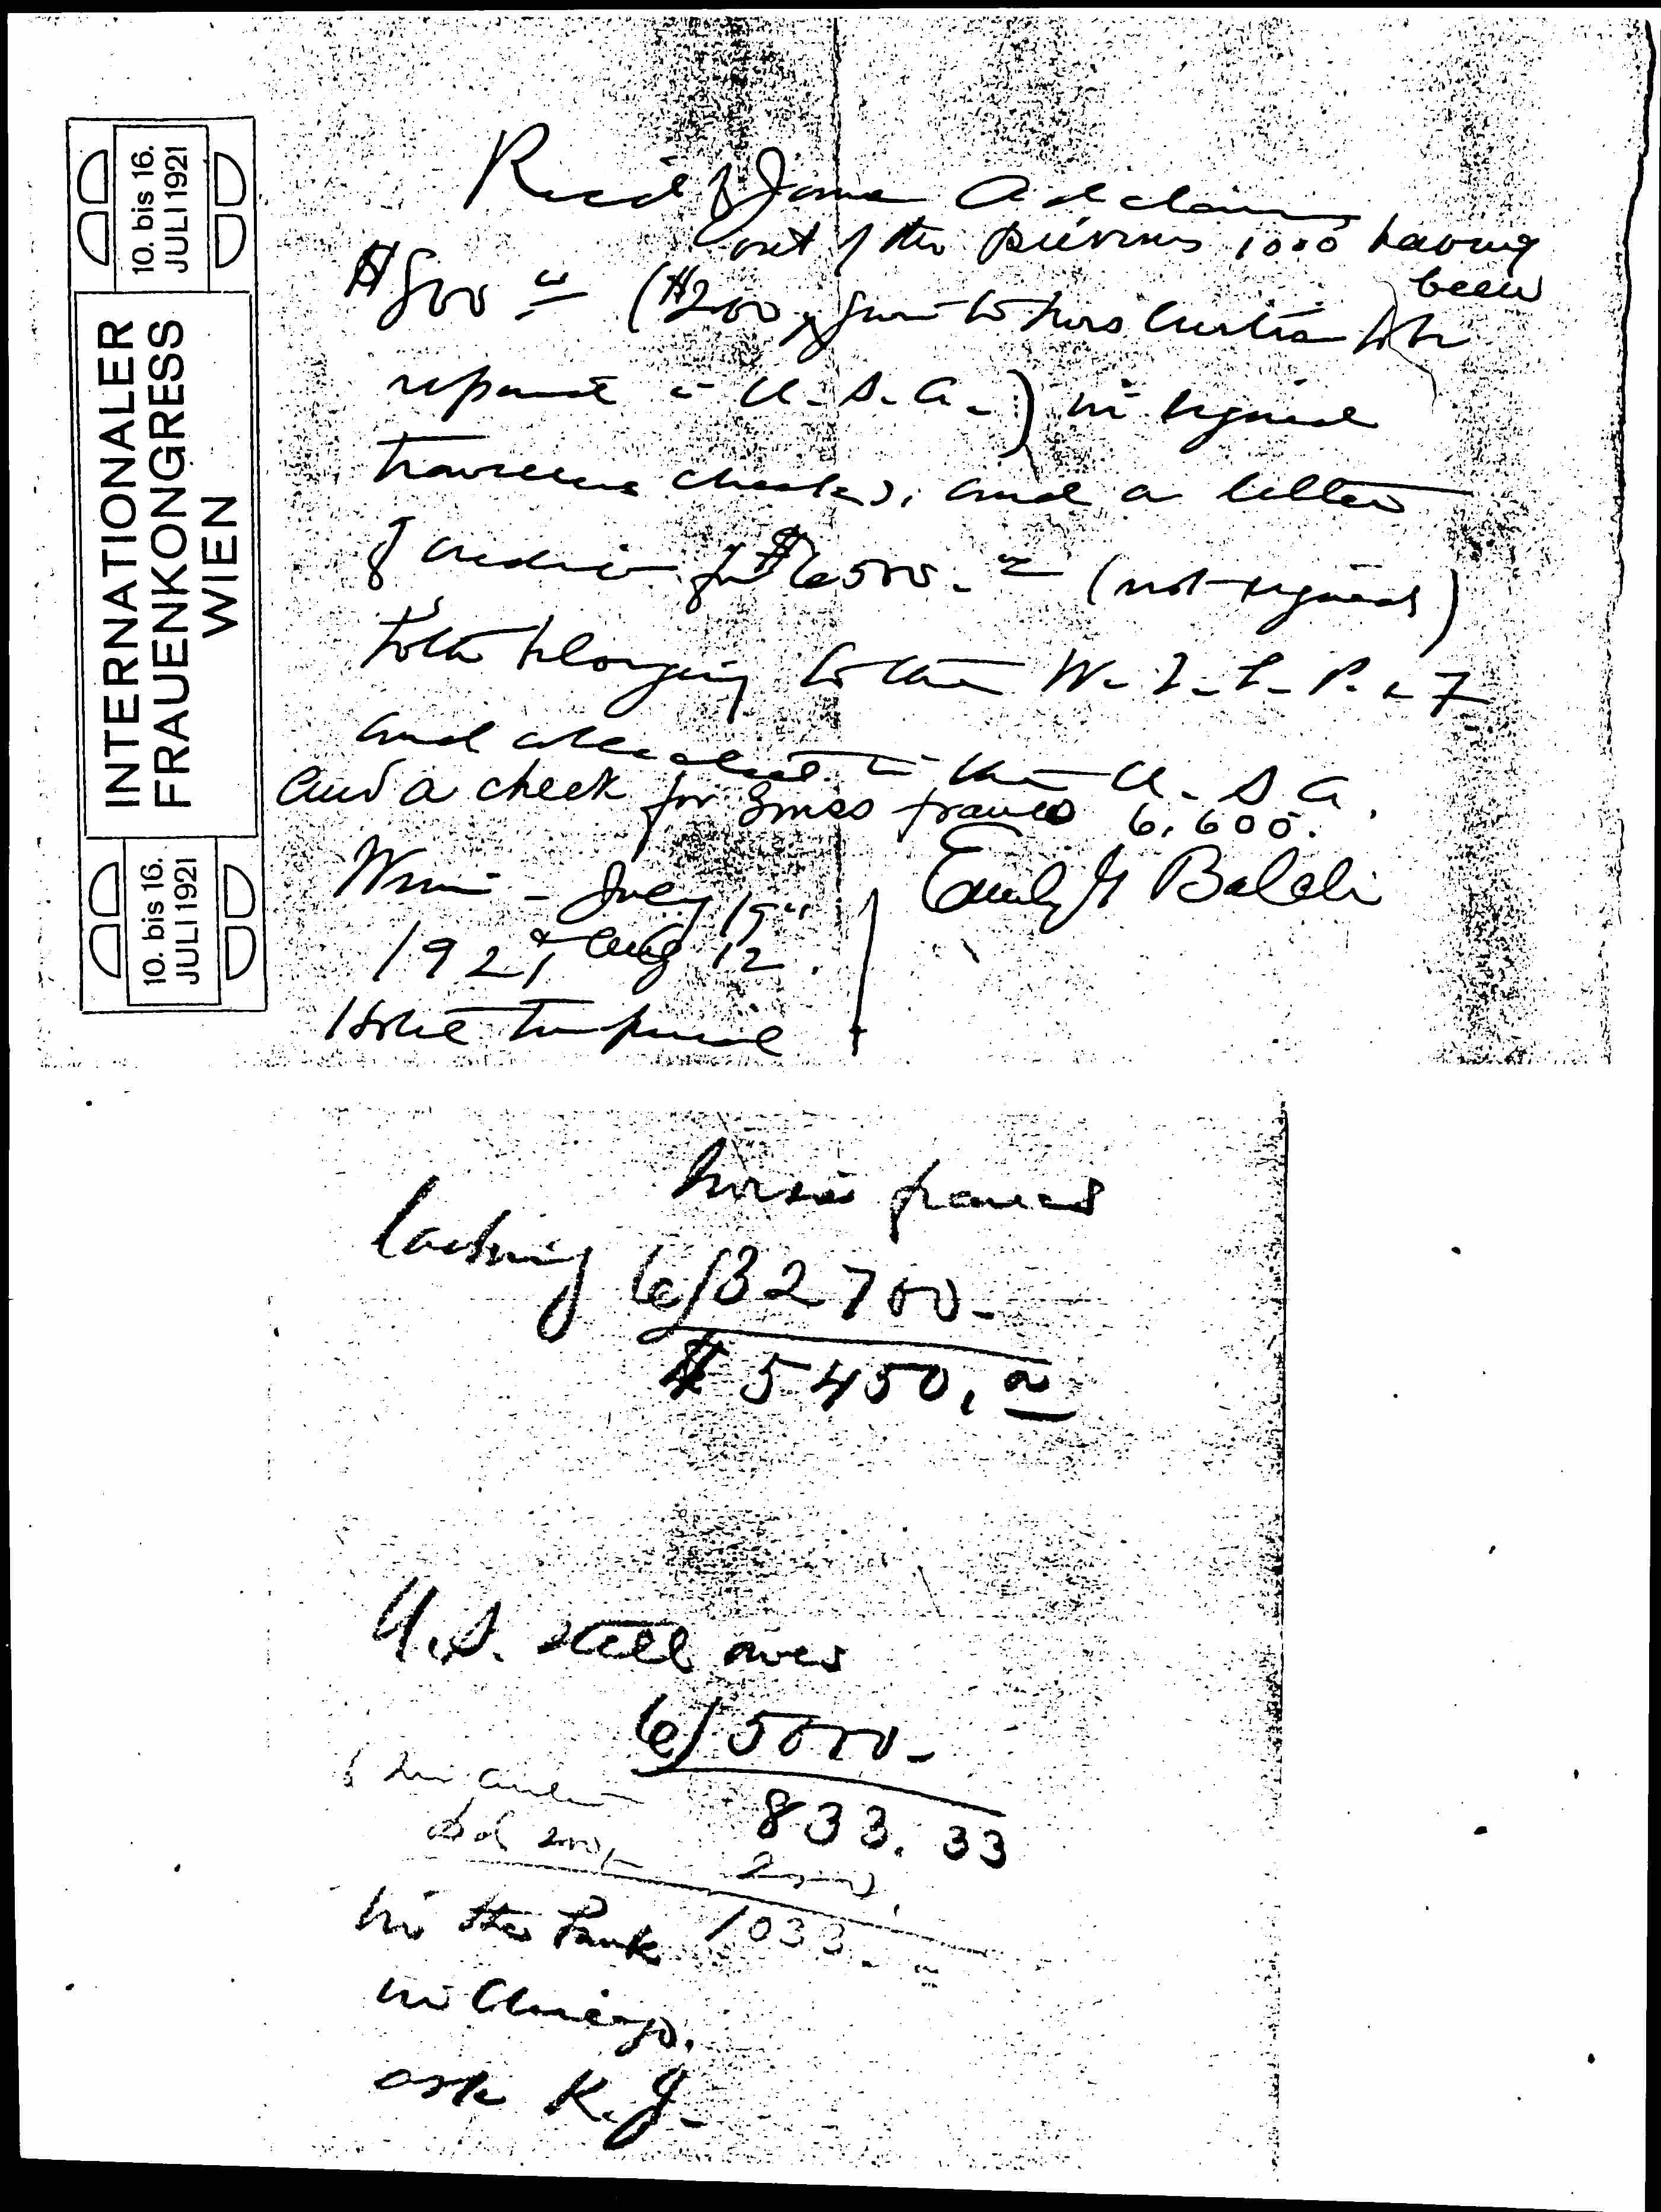 10. bis 16.
JULI 1921
INTERNATIONALER
FRAUENKONGRESS
WIEN
10. bis 16.
JULI 1921
Rec'd of Jane Addams
out of the previous 1000 having
been
$800 00 ($200 given to to be
in U.S.A.) in signed
travellers checks, and a letter
of credit for $6500.00 (not signed)
both belonging to the W.I.L.P. & F
and collected in the U.S.A.
and a check for Swiss francs 6,600.
July 19th
1921 & Aug 12.
Emily G Balch
Hotel Imperial
francs
lacking 6/32700-
$5450.00
U.S. still owes
6/5000-
833.33
200
1033.
in the bank
in Chicago.
ask K.J.